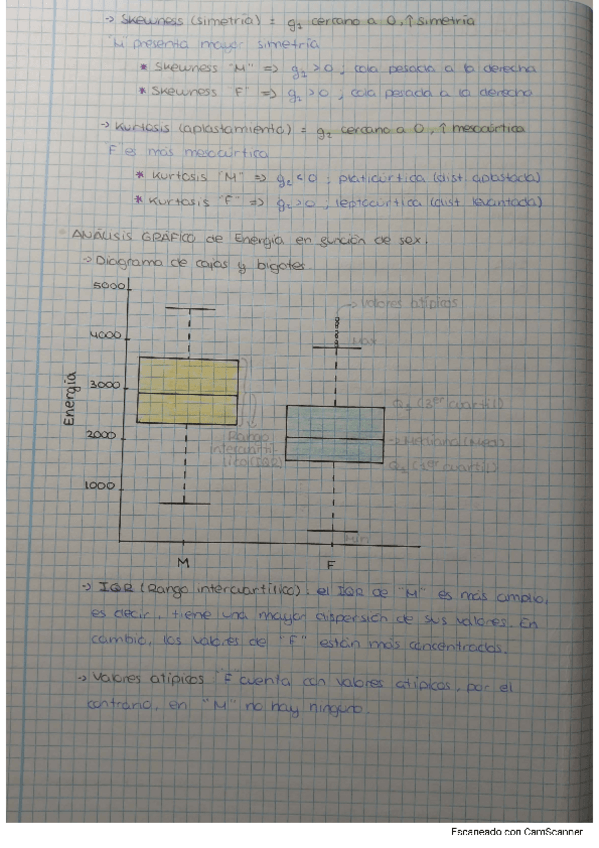 → Skewness (simetría) = g₁ cercano a 0, ↑ simetría
M presenta mayor simetría
* Skewness "M" => g₁ > 0 ; cola pesada a la derecha
* Skewness "F" => g₁ > 0 ; cola pesada a la derecha
→ Kurtosis (aplastamiento) = g₂ cercano a 0, ↑ mesocúrtica
F es más mesocúrtica
* Kurtosis "M" => g₂ < 0 ; platicúrtica (dist. aplastada)
* Kurtosis "F" => g₂ > 0 ; leptocúrtica (dist. levantada)
ANÁLISIS GRÁFICO de Energía en función de sex.
→ Diagrama de cajas y bigotes
5000
→ Valores atípicos
4000
Max
Energía
3000
Q₃ (3er cuartil)
2000
Rango
intercuartí-
lico (IQR)
→ Mediana (Med)
(1er cuartil)
1000
Min
M
F
→ IQR (Rango intercuartílico): el IQR de "M" es más amplio,
es decir, tiene una mayor dispersión de sus valores. En
cambio, los valores de "F" están más concentrados.
→ Valores atípicos "F" cuenta con valores atípicos, por el
contrario, en "M" no hay ninguno.
Escaneado con CamScanner